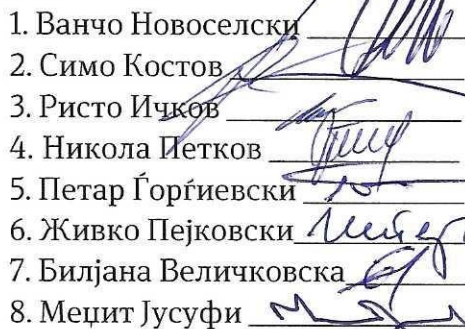 1. Ванчо Новоселски
2. Симо Костов
3. Ристо Ичков
4. Никола Петков
5. Петар Ѓорѓиевски
6. Живко Пејковски
7. Билјана Величковска
8. Меџит Јусуфи